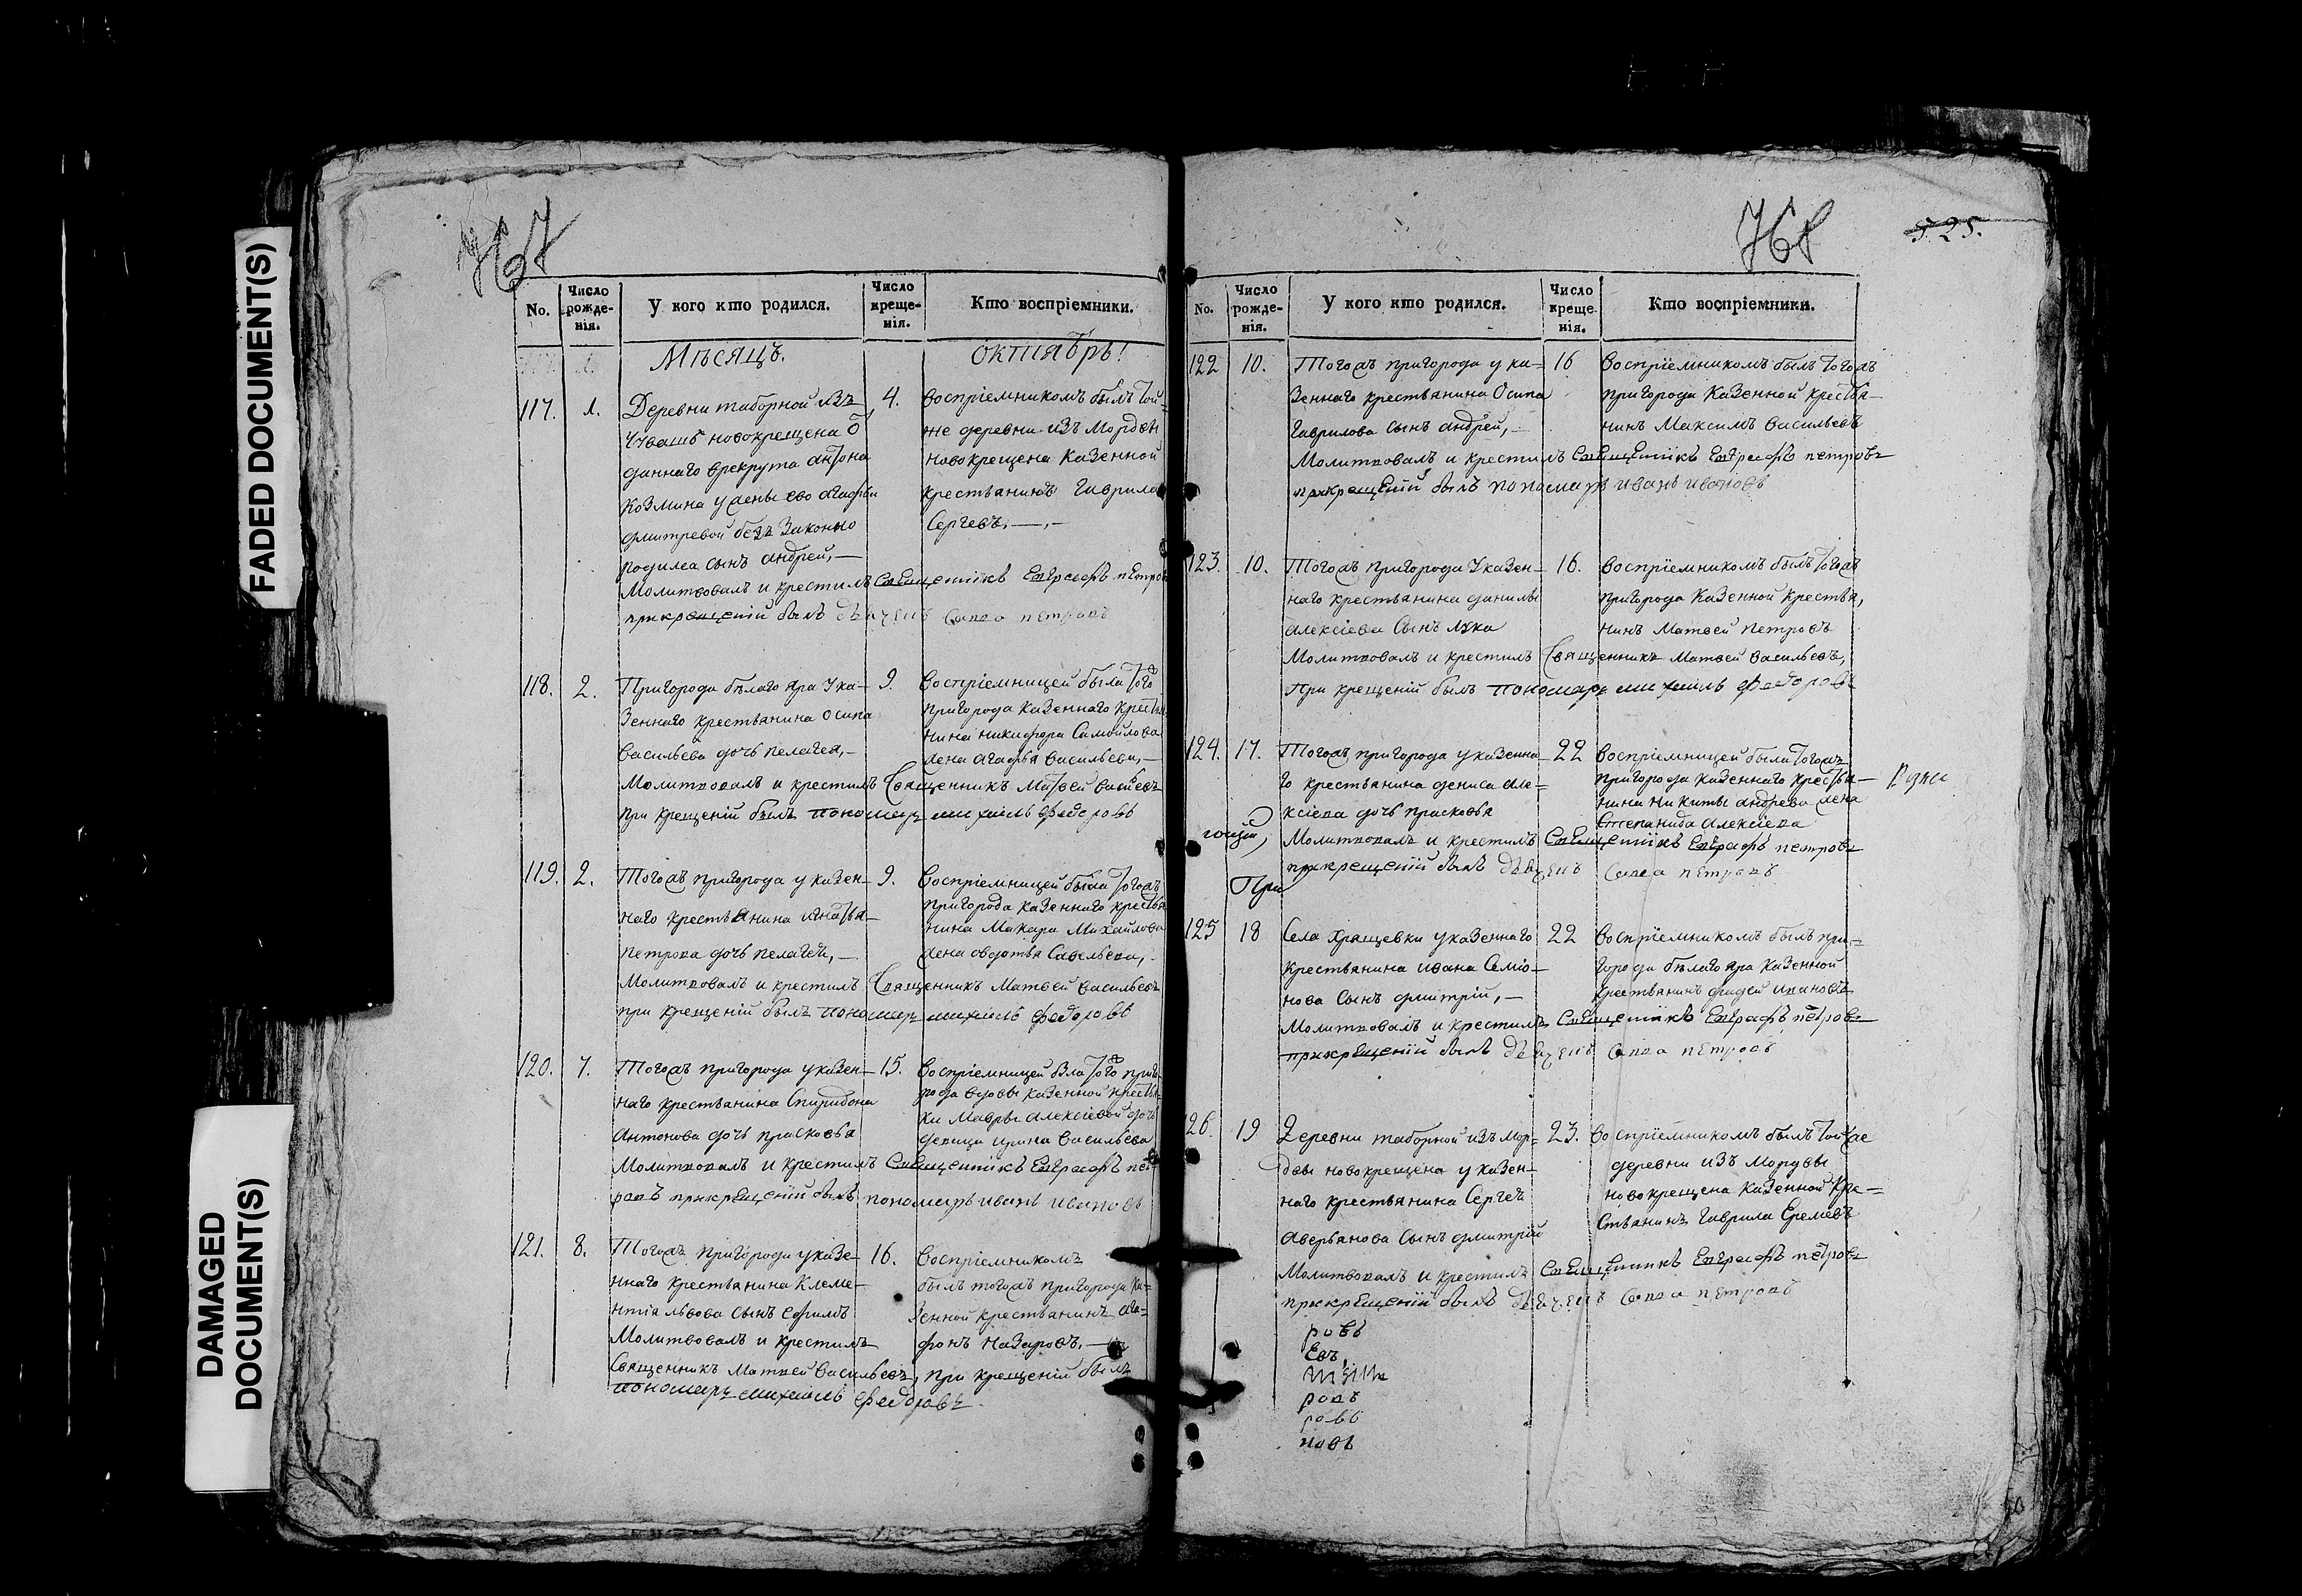 FADED DOCUMENT(S)
DAMAGED
DOCUMENT(S)
767
No.
Число
рожде-
нія.
У кого кто родился.
Число
креще-
нія.
Кто воспріемники.
Мѣсяцъ.
октябрь!
117.
1.
Деревни таборной изъ
Чувашъ новокрещена о
даннаго врекрута антона
козмина у жены ево агафьи
дмитревой безъ законно
родилса сынъ андрей,—
Молитвовалъ и крестилъ Священникъ Евграфъ петровъ
прикрещеніи былъ дьячекъ Савва петровъ
4.
воспріемникомъ былъ той
же деревни изъ Мордвы
новокрещена казенной
крестьянинъ Гаврила
Сергеевъ,—,—
118.
2.
Пригорода бѣлаго яра у ка-
зеннаго крестьянина осипа
васильева дочь пелагея,—
Молитвовалъ и крестилъ Священникъ Матвей васильевъ
при крещеніи былъ пономарь михаилъ федоровъ
9.
воспріемницей была того
пригорода казеннаго крестья
нина никифора Самойлова
жена агафья васильева,—
119.
2.
Тогожъ пригорода у казен-
наго крестьянина игнатья-
петрова дочь пелагея,—
Молитвовалъ и крестилъ Священникъ Матвей васильевъ
при крещеніи былъ пономарь михаилъ федоровъ
9.
воспріемницей была тогожъ
пригорода казеннаго крестья
нина Макара Михайлова
жена овдотья Савельева,
120.
7.
Тогожъ пригорода у казен-
наго крестьянина Спиридона
антонова дочь прасковья
Молитвовалъ и крестилъ Священникъ Евграфъ пет
ровъ прикрещеніи былъ пономарь иванъ ивановъ
15.
воспріемницей была того приго
рода вдовы казенной крестьян
ки Мавры алексіевой дочь
девица ирина васильева
121.
8.
Тогожъ пригорода у казе-
ннаго крестьянина Клеме-
нтіа львова сынъ ефимъ
Молитвовалъ и крестилъ
Священникъ Матвей васильевъ, при крещеніи былъ
пономарь михаилъ федоровъ.
16.
воспріемникомъ
былъ тогожъ пригорода ка=
зенной крестьянинъ ага-
фонъ назаровъ.—
768
525.
No.
Число
рожде-
нія.
У кого кто родился.
Число
креще
нія.
Кто воспріемники.
122
10.
Тогожъ пригорода у ка=
зеннаго крестьянина осипа
Гаврилова сынъ андрей,—
Молитвовалъ и крестилъ Священникъ Евграфъ петровъ
прикрещеніи былъ пономарь иванъ ивановъ
16
воспріемникомъ былъ тогожъ
пригорода казенной крестья-
нинъ Максимъ васильевъ
123.
10.
Тогожъ пригорода у казен-
наго крестьянина данилы
алексіева сынъ лука
Молитвовалъ и крестилъ Священникъ Матвей васильевъ,
при крещеніи былъ пономарь михаилъ федоровъ
16.
воспріемникомъ былъ тогожъ
пригорода казенной крестья,
нинъ Матвей петровъ
124.
17.
Тогожъ пригорода у казенна-
го крестьянина дениса але=
ксіева дочь прасковья
Молитвовалъ и крестилъ Священникъ Евграфъ петровъ
прикрещеніи былъ дьячекъ Савва петровъ
22
воспріемницей была тогожъ
пригорода казеннаго крестья-
нина никиты андрева жена
Степанида алексіева
При
125
18
Села хрящевки у казеннаго
крестьянина ивана Семіо-
нова сынъ дмитрій,—
Молитвовалъ и крестилъ Священникъ Евграфъ петровъ
прикрещеніи былъ дьячекъ Савва петровъ
22
воспріемникомъ былъ при=
города бѣлаго яра казенной
крестьянинъ фадей ивановъ
126.
19
Деревни таборной изъ мор=
двы новокрещена у казен-
наго крестьянина Сергея
аверьянова сынъ дмитрій
Молитвовалъ и крестилъ Священникъ Евграфъ петровъ
прикрещеніи былъ дьячекъ Савва петровъ
23.
воспріемникомъ былъ тойже
деревни изъ мордвы
новокрещена казенной кре=
стьянинъ Гаврила Еремеевъ
ровъ
евъ,
ровъ
ровъ
новъ